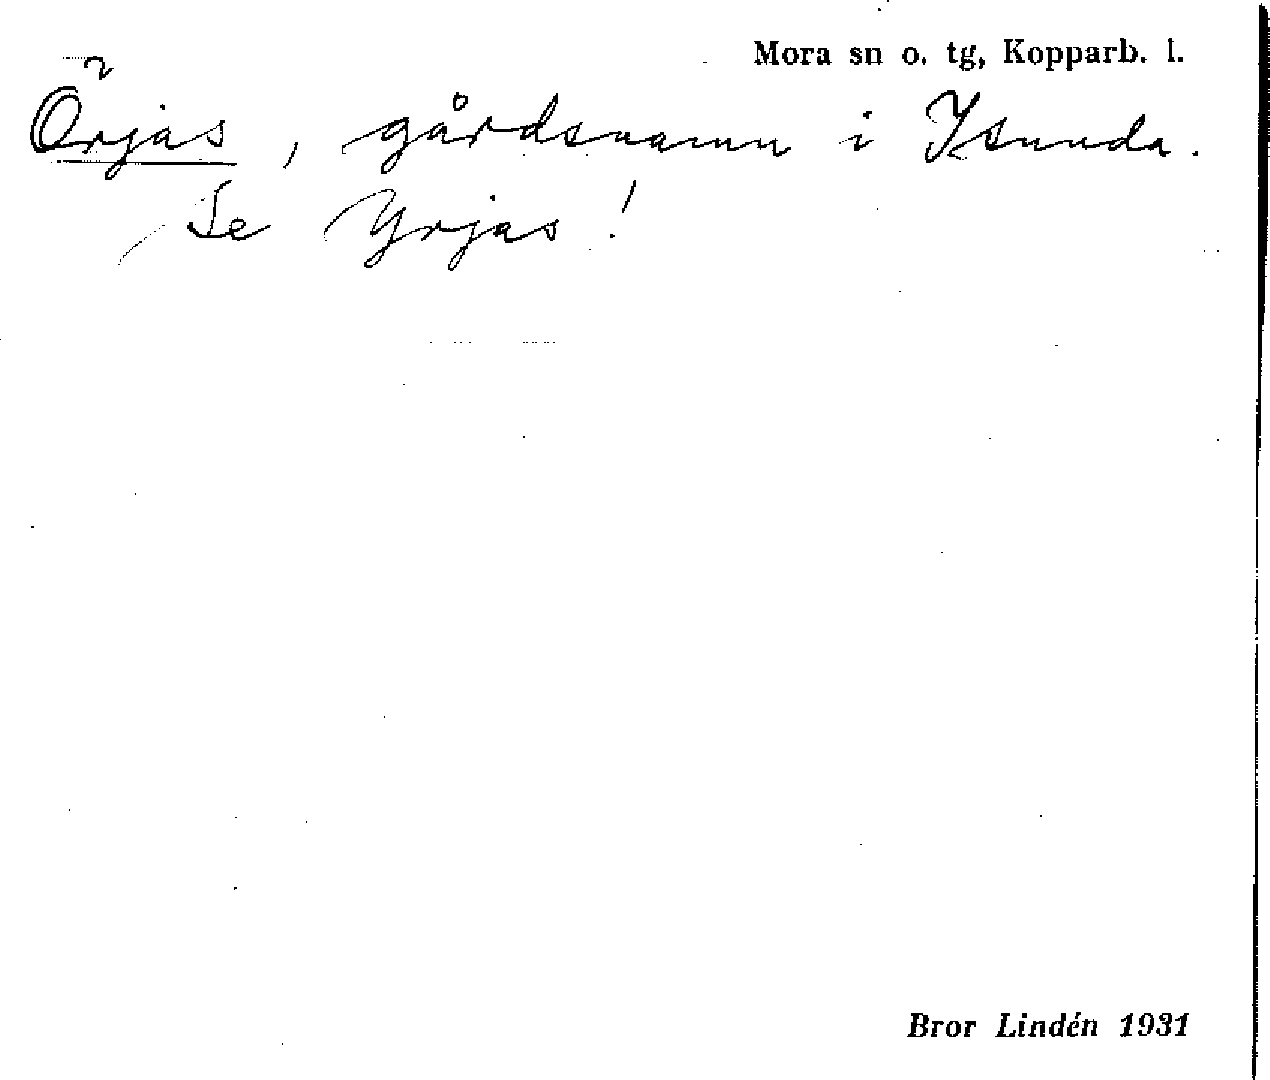 Mora sn o. tg, Kopparb. l.
Örjas, gårdsnamn i Isunda.
Se Yrjas!
Bror Lindén 1931